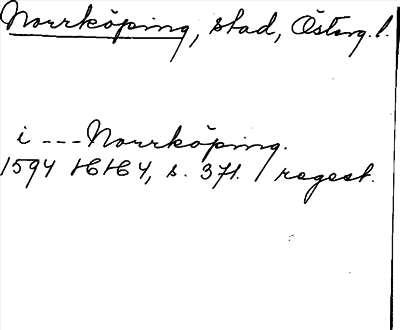 Norrköping, stad, Österg. l.
i --- Norrköping.
1594 HH 4, s. 371. / regest.